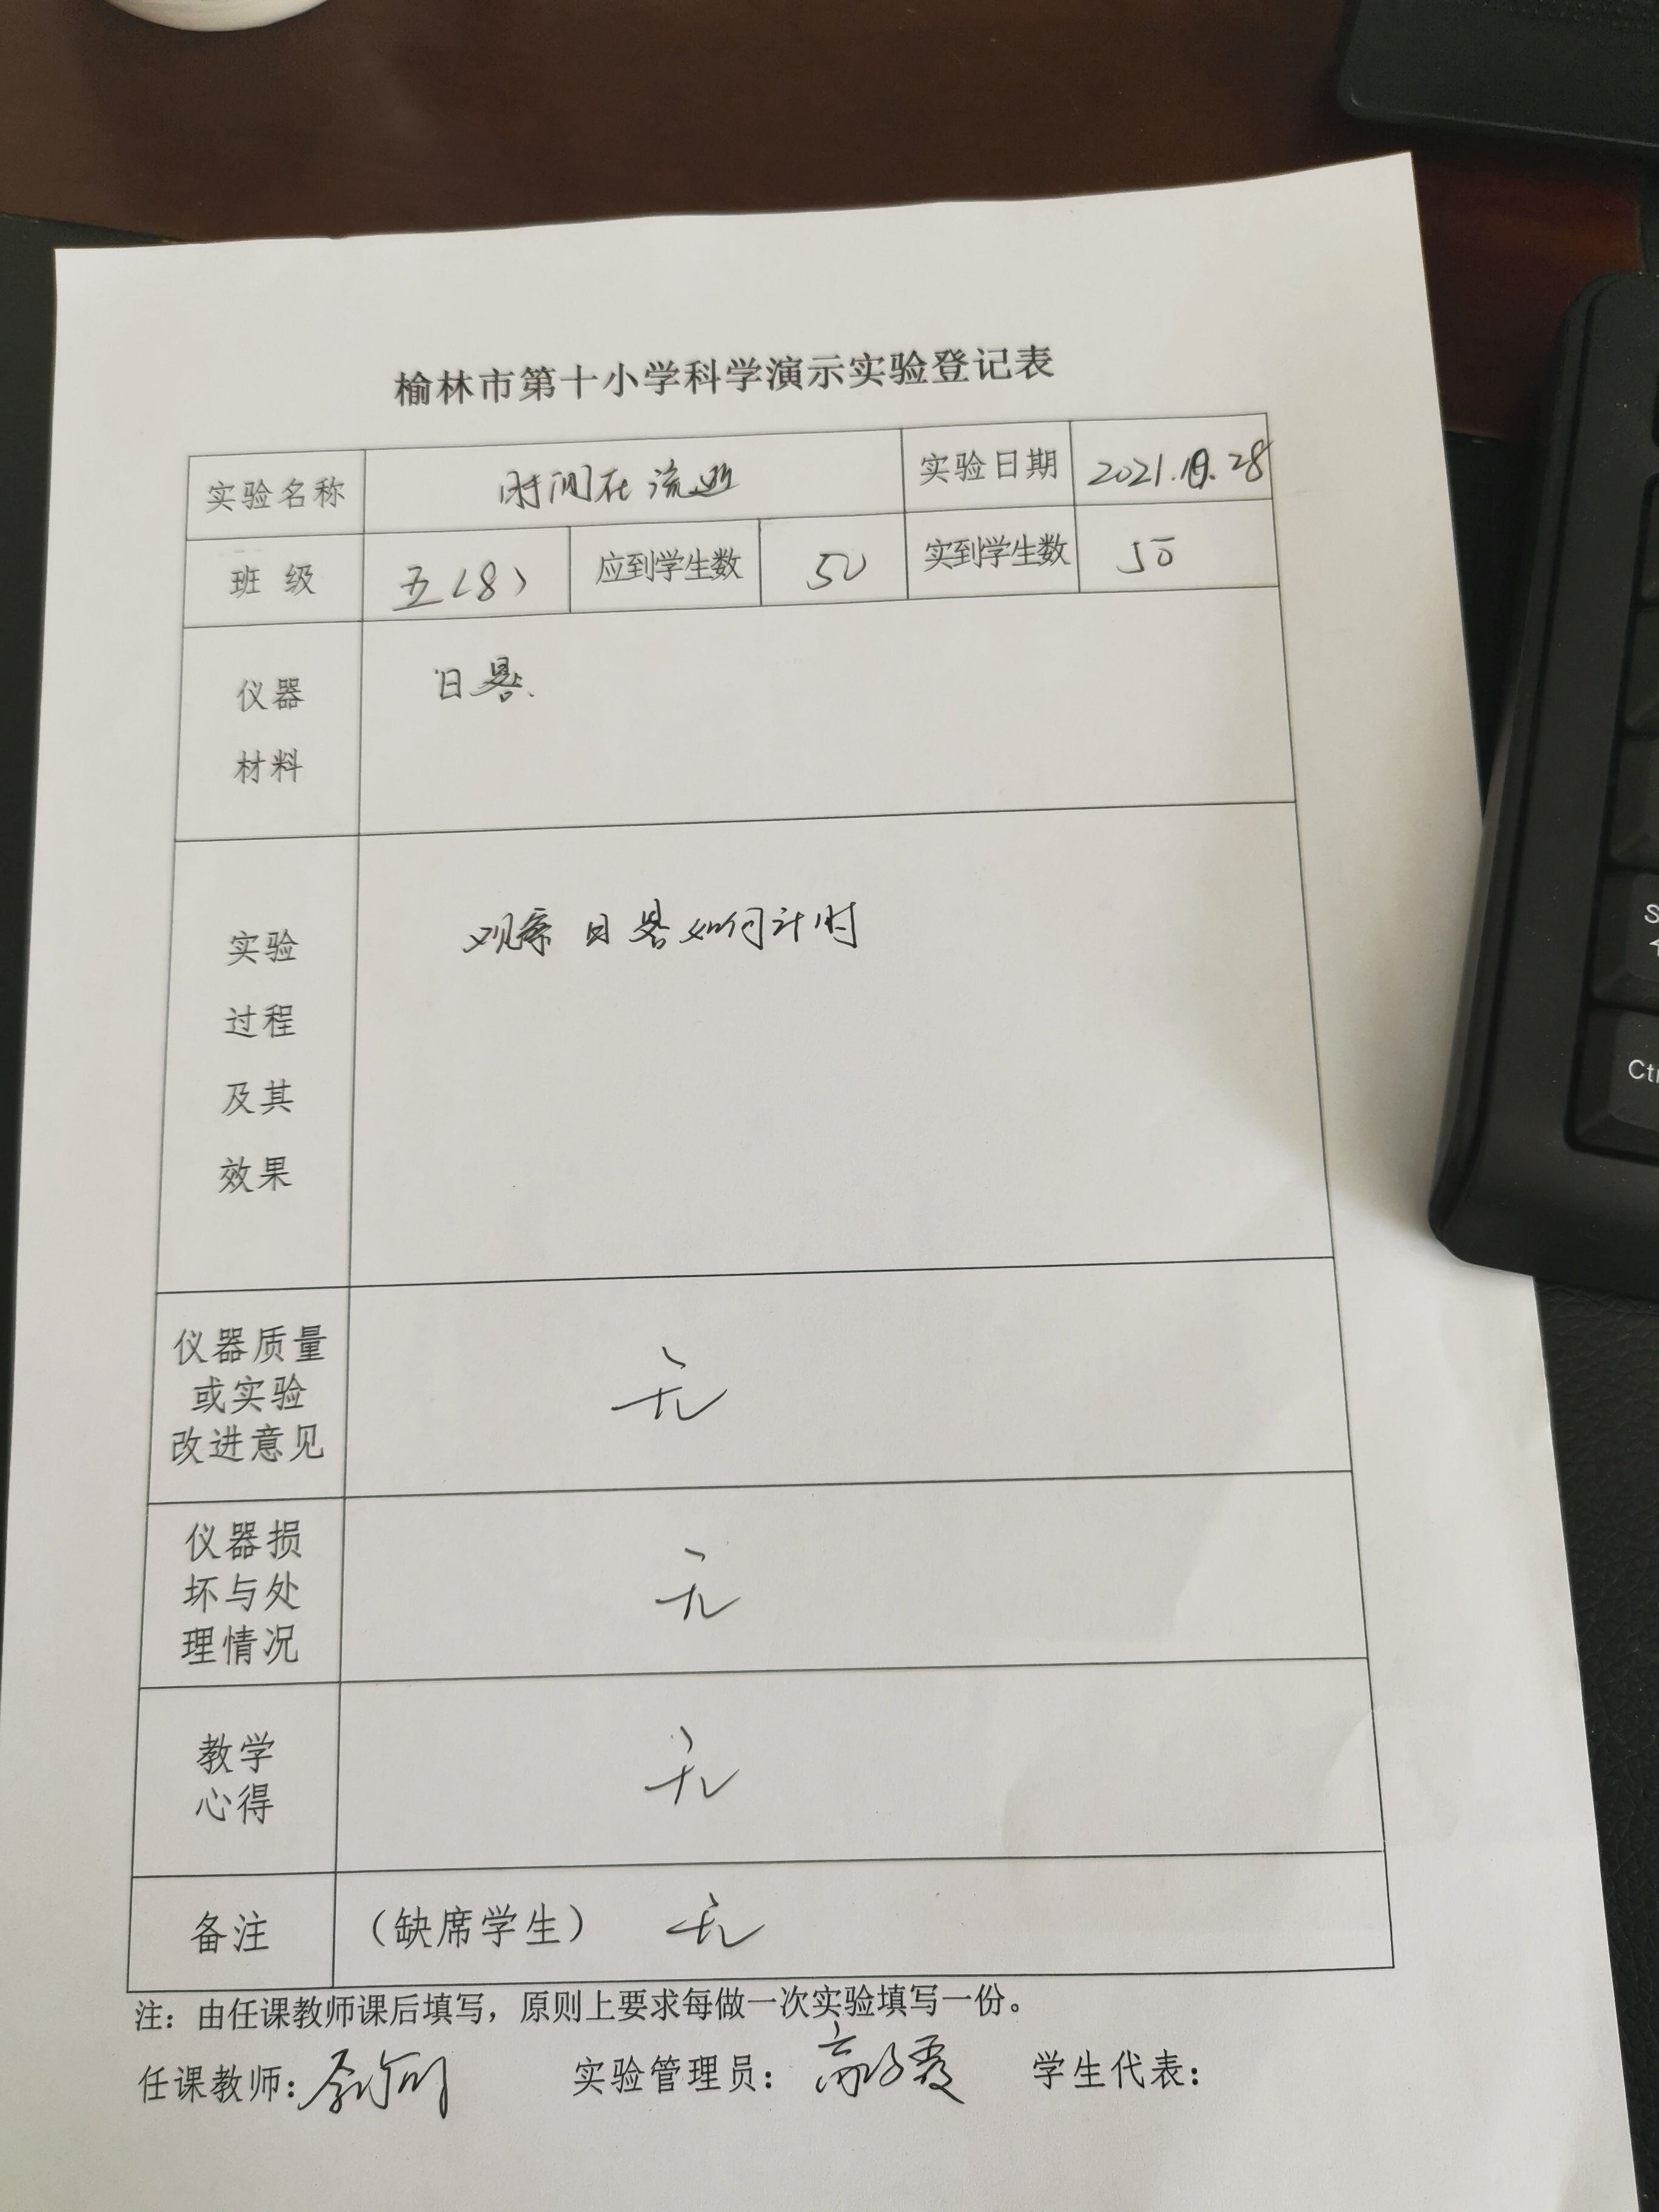 榆林市第十小学科学演示实验登记表
实验名称 时间在流逝 实验日期 2021.10.28
班 级 五(8) 应到学生数 50 实到学生数 50
仪器
材料
日晷.
实验
过程
及其
效果
观察日晷如何计时
仪器质量
或实验
改进意见
无
仪器损
坏与处
理情况
无
教学
心得
无
备注 (缺席学生) 无
注：由任课教师课后填写，原则上要求每做一次实验填写一份。
任课教师： 实验管理员： 学生代表：
S
Ctr